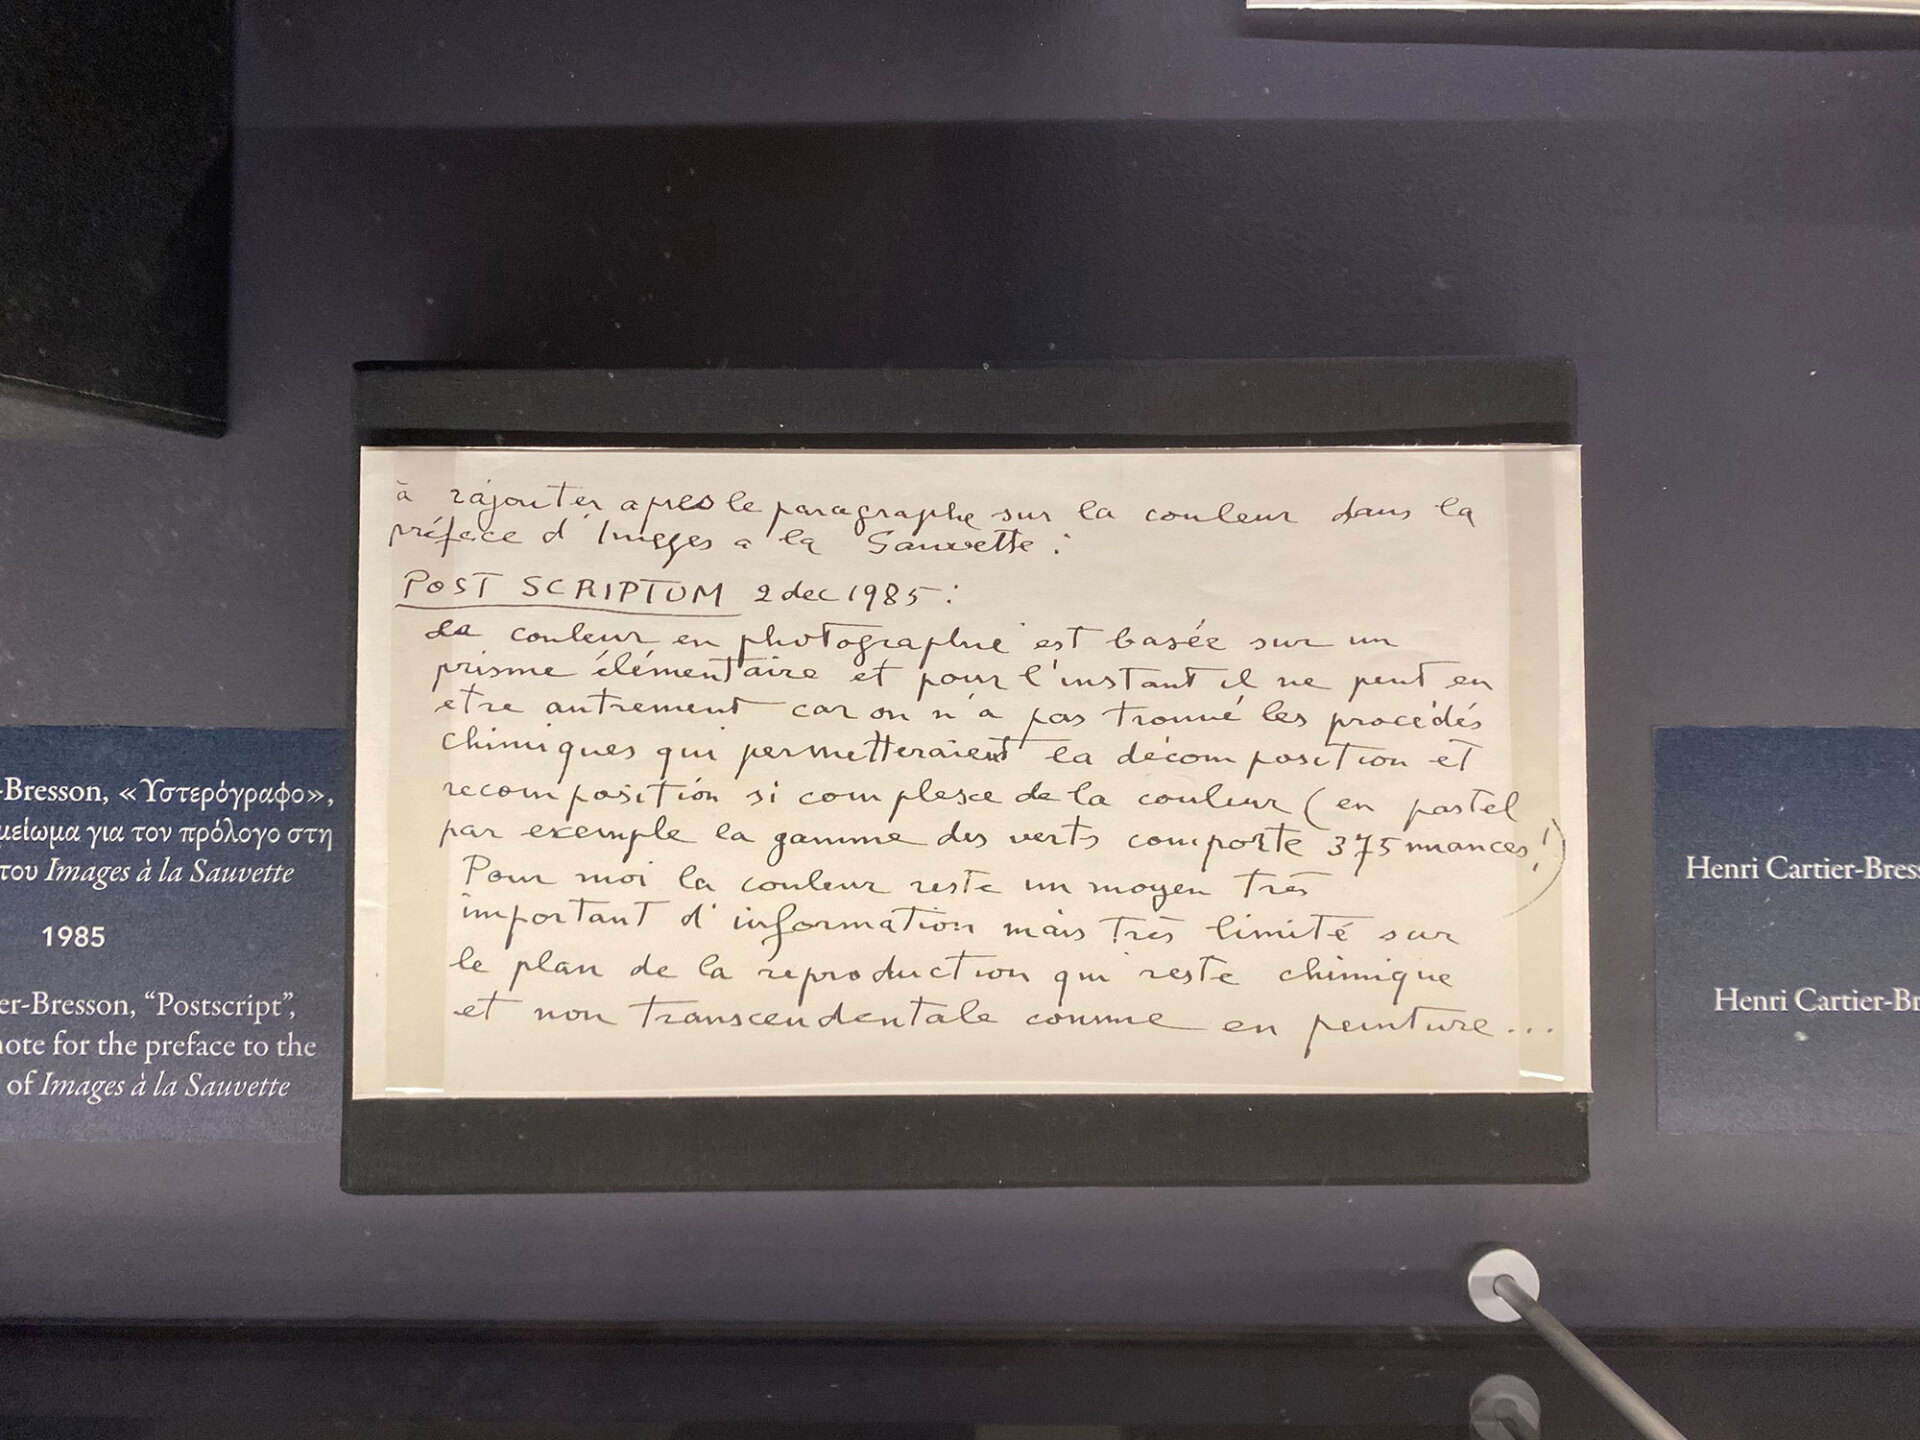 à rajouter apres le paragraphe sur la couleur dans la
préface d'Images a la Sauvette :
POST SCRIPTUM 2 dec 1985 :
La couleur en photographie est basée sur un
prisme élémentaire et pour l'instant il ne peut en
etre autrement car on n'a pas trouvé les procédés
chimiques qui permetteraient la décomposition et
recomposition si complexe de la couleur (en pastel
par exemple la gamme des verts comporte 375 nuances!)
Pour moi la couleur reste un moyen très
important d'information mais très limité sur
le plan de la reproduction qui reste chimique
et non transcendentale comme en peinture...
-Bresson, «Υστερόγραφο»,
μείωμα για τον πρόλογο στη
του Images à la Sauvette
1985
er-Bresson, “Postscript”,
note for the preface to the
of Images à la Sauvette
Henri Cartier-Bress
Henri Cartier-Br